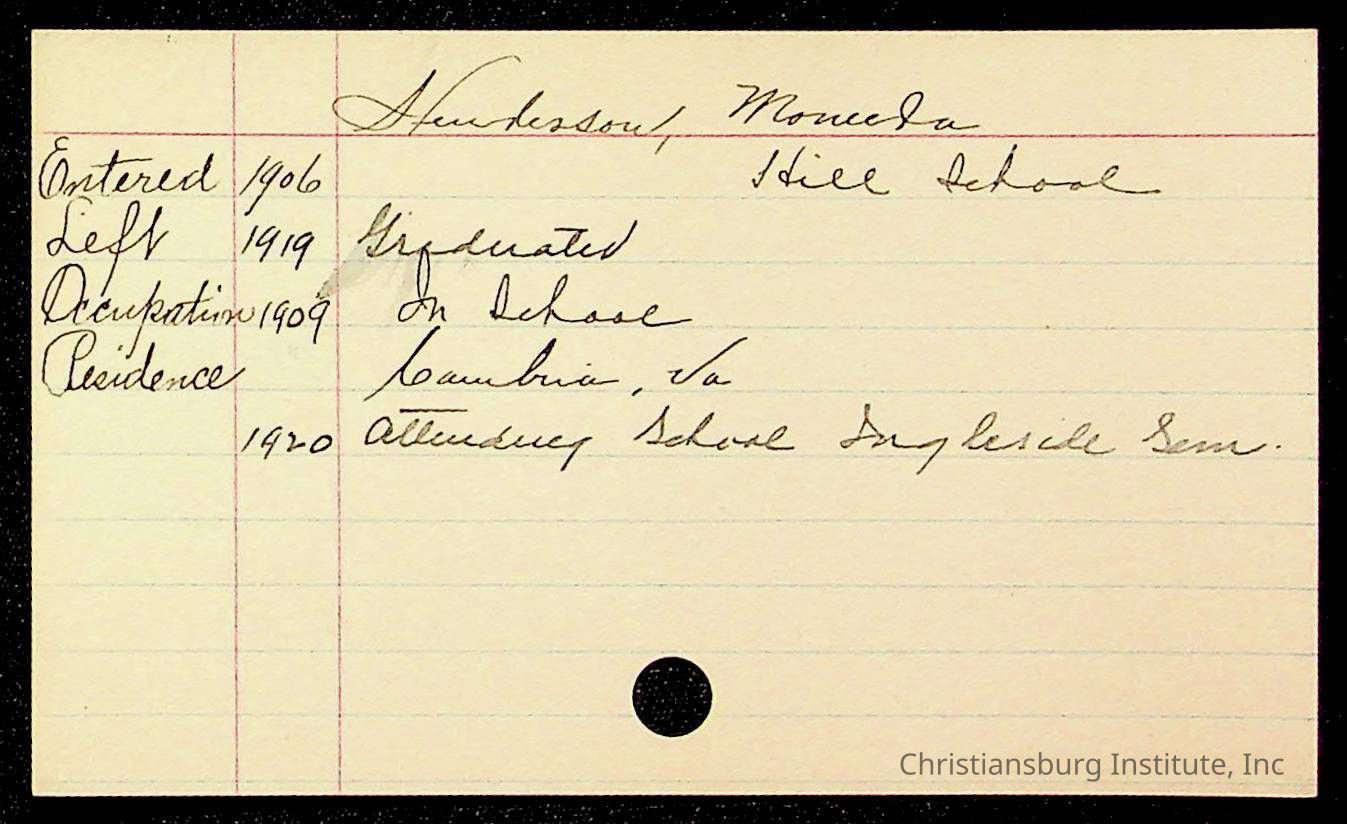 Henderson, Moneda
Entered 1906 Hill School
Left 1919 Graduated
Occupation 1909 In School
Residence Cambria, Va
1920 Attending School Ingleside Sem.
Christiansburg Institute, Inc